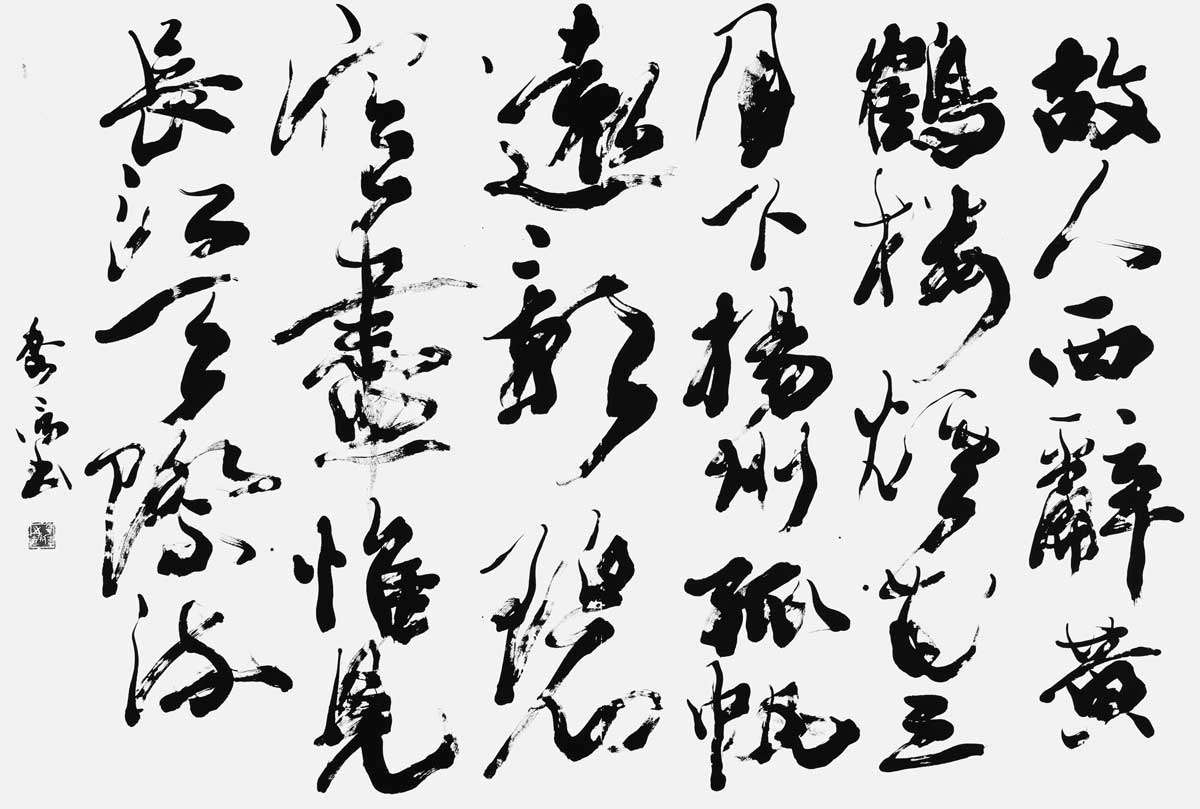 故人西辭黃
鶴樓煙花三
月下揚州孤帆
遠影碧
空盡惟見
長江天際流